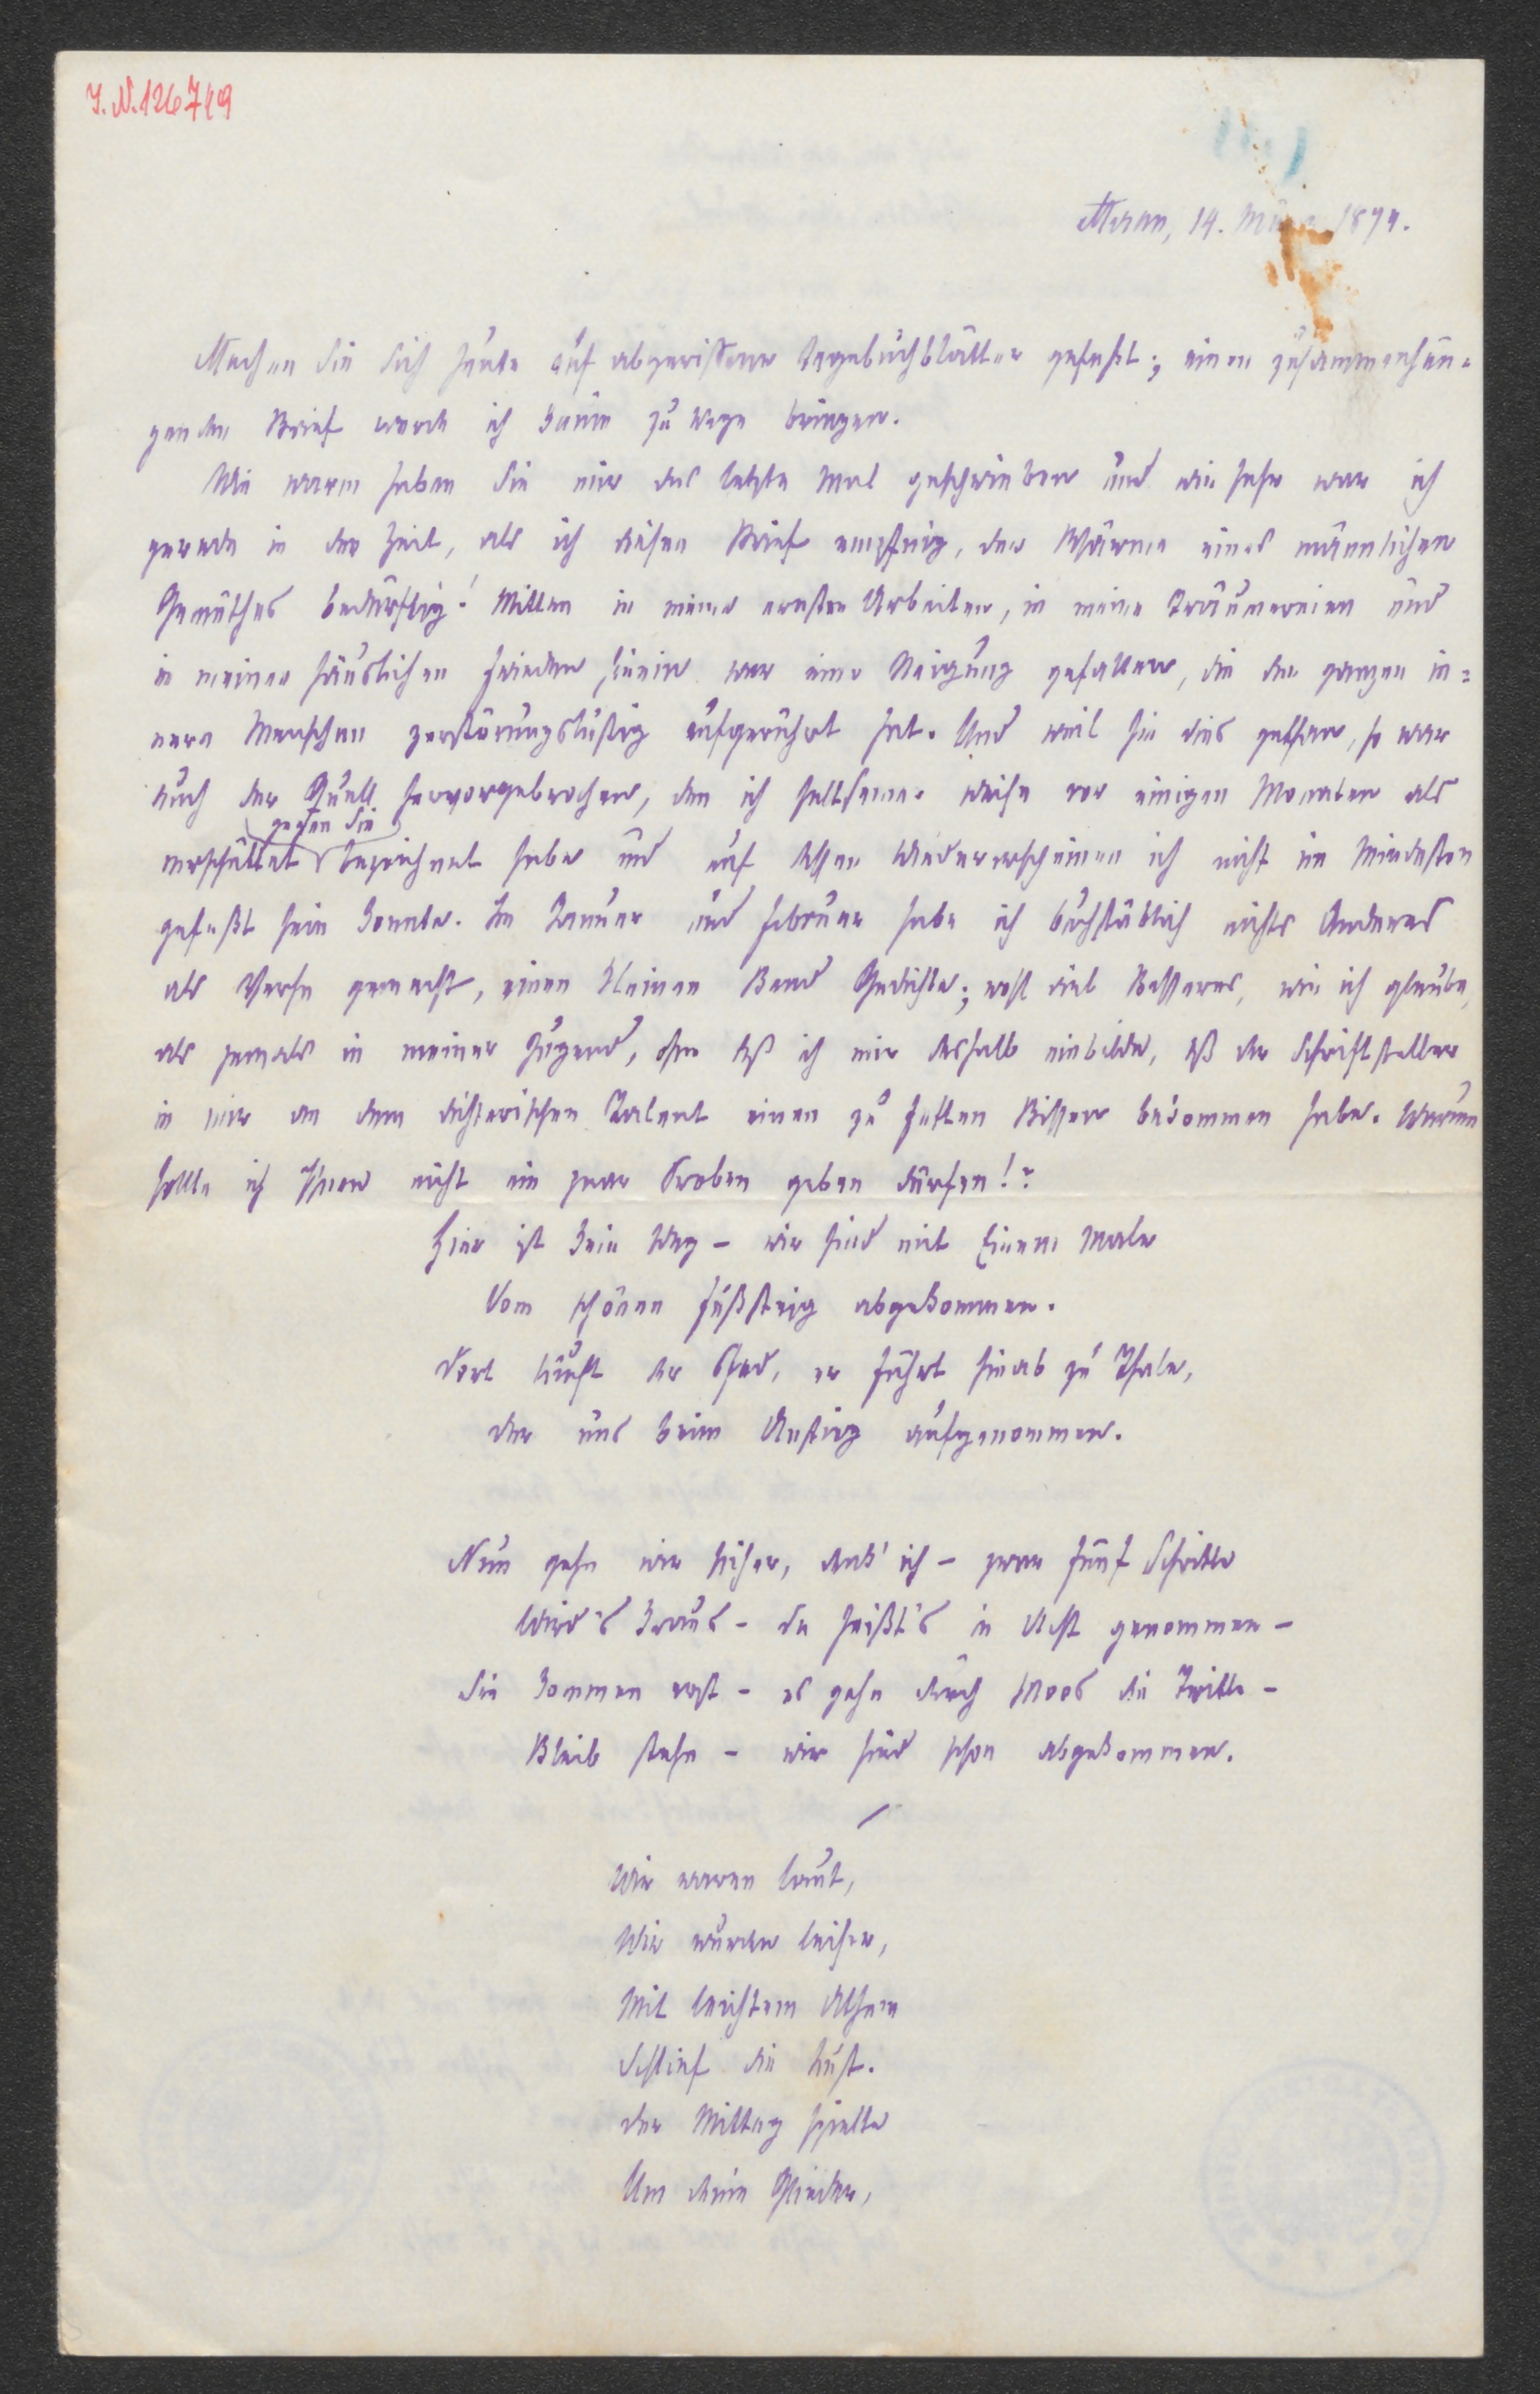 I. N. 126749
Meran, 14. März 1874.
Machen Sie sich heute auf abgerissene Tagebuchblätter gefaßt; einen zusammenhän-
genden Brief werde ich kaum zu Wege bringen.
Wie warm haben Sie mir das letzte Mal geschrieben und wie sehr war ich
gerade in der Zeit, als ich diesen Brief empfing, der Wärme eines männlichen
Gemüthes bedürftig! Mitten in meine ernsten Arbeiten, in meine Träumereien und
in meinen häuslichen Frieden hinein war eine Neigung gefallen, die den ganzen in-
nern Menschen zerstörungslustig aufgerührt hat. Und weil sie dies gethan, so war
auch der Quell hervorgebrochen, den ich seltsamer Weise vor einigen Monaten als
gegen Sie
verschüttet bezeichnet habe und auf dessen Wiedererscheinen ich nicht im Mindesten
gefaßt sein konnte. Im Januar und Februar habe ich buchstäblich nichts Anderes
als Verse gemacht, einen kleinen Band Gedichte; wohl viel Besseres, wie ich glaube,
als jemals in meiner Jugend, ohne daß ich mir deshalb einbilde, daß der Schriftsteller
in mir an dem dichterischen Talent einen zu fetten Bissen bekommen habe. Warum
sollte ich Ihnen nicht ein paar Proben geben dürfen!?
Hier ist kein Weg – wir sind mit Einem Male
Vom schönen Fußsteig abgekommen.
Dort läuft der Pfad, er führt hinab zu Thale,
Der uns beim Anstieg aufgenommen.
Nun gehn wir sicher, denk' ich – zwar fünf Schritte
Wird's kraus – da heißt's in Acht genommen –
Sie kommen erst – es gehn durch Moos die Tritte –
Bleib stehn – wir sind schon abgekommen.
Wir waren laut,
Wir wurden leiser,
Mit leichtem Athem
Schlief die Luft.
Der Mittag spielte
Um deine Glieder,